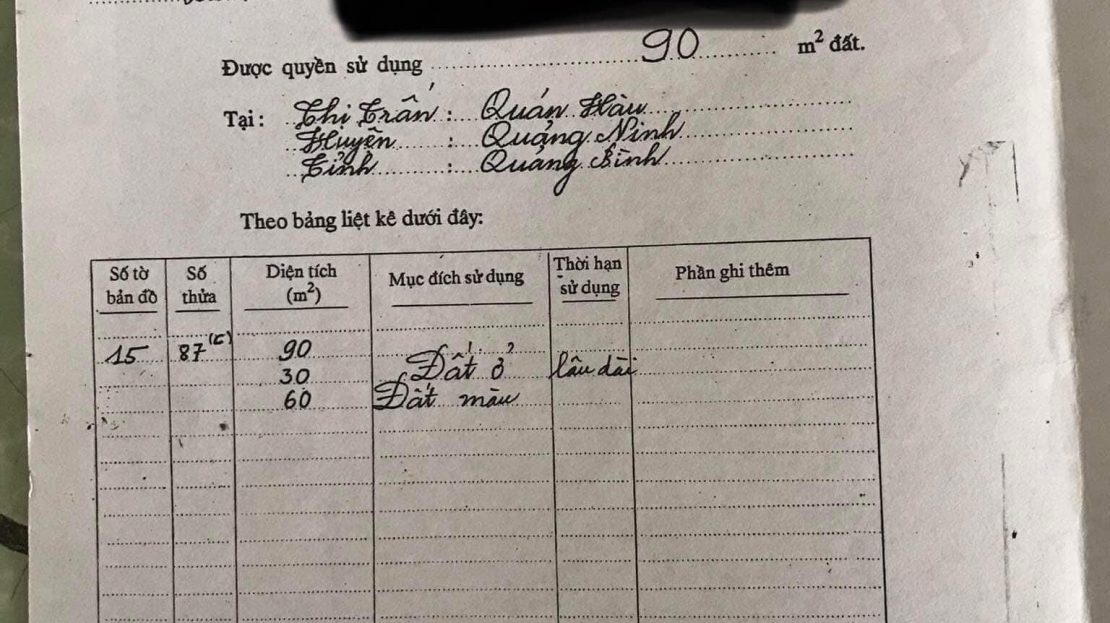 Được quyền sử dụng 90 m² đất.
Tại: Thị Trấn : Quán Hàu
Huyện : Quảng Ninh
Tỉnh : Quảng Bình
Theo bảng liệt kê dưới đây:
Số tờ bản đồ Số thửa Diện tích (m²) Mục đích sử dụng Thời hạn sử dụng Phần ghi thêm
15 87 90
30 Đất ở lâu dài
60 Đất màu